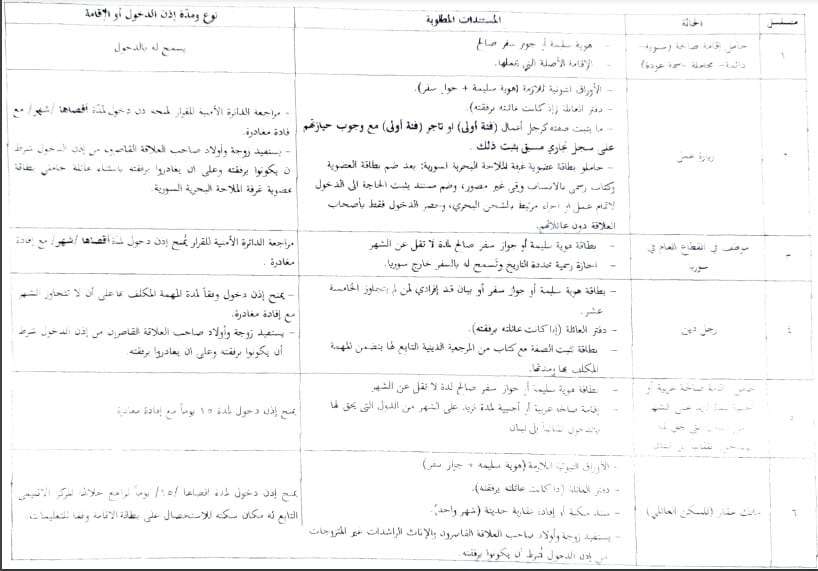 متسلسل
الحالة
المستندات المطلوبة
نوع ومدّة إذن الدخول أو الإقامة
١
حامل إقامة صالحة (سنوية-
دائمة- مجاملة- سمة عودة)
- هوية سليمة أو جواز سفر صالح
- الإقامة الأصلة التي يحملها.
يسمح له بالدخول
زيارة عمل
- الأوراق الثبوتية اللازمة (هوية سليمة + جواز سفر).
- دفتر العائلة (إذا كانت عائلته برفقته).
- ما يثبت صفته كرجل أعمال (فئة أولى) او تاجر (فئة أولى) مع وجوب حيازتهم
على سجل تجاري مسبق يثبت ذلك.
- حاملو بطاقة عضوية غرفة الملاحة البحرية السورية: بعد ضم بطاقة العضوية
وكتاب رسمي بالانتساب وقي غير مصور، وضم مستند يثبت الحاجة الى الدخول
لاتمام عمل او اجراء مرتبط بالشحن البحري، وحصر الدخول فقط بأصحاب
العلاقة دون عائلاتهم.
- مراجعة الدائرة الأمنية للقرار لمنحه اذن دخول لمدّة أقصاها /شهر/ مع
افادة مغادرة.
- يستفيد زوجة وأولاد صاحب العلاقة القاصرون من إذن الدخول شرط
ان يكونوا برفقته وعلى ان يغادروا برفقته باستثناء عائلة حاملي بطاقة
عضوية غرفة الملاحة البحرية السورية.
موظف في القطاع العام في
سوريا
- بطاقة هوية سليمة أو جواز سفر صالح لمدة لا تقل عن الشهر
- اجازة رسمية محددة التاريخ وتسمح له بالسفر خارج سوريا.
مراجعة الدائرة الأمنية للقرار يُمنح إذن دخول لمدة أقصاها /شهر/ مع إفادة
مغادرة.
٤
رجل دين
- بطاقة هوية سليمة أو جواز سفر أو بيان قيد إفرادي لمن لم يتجاوز الخامسة
عشر.
- دفتر العائلة (إذا كانت عائلته برفقته).
- بطاقة تثبت الصفة مع كتاب من المرجعية الدينية التابع لها يتضمن المهمة
المكلف بها ومدتها.
- يمنح إذن دخول وفقاً لمدة المهمة المكلف بها على أن لا تتجاوز الشهر
مع إفادة مغادرة.
- يستفيد زوجة وأولاد صاحب العلاقة القاصرون من إذن الدخول شرط
أن يكونوا برفقته وعلى ان يغادروا برفقته.
صالحة عربية أو
- بطاقة هوية سليمة أو جواز سفر صالح لمدة لا تقل عن الشهر
- إقامة صالحة عربية أو أجنبية لمدة تزيد على الشهر من الدول التي يحق لها
بالدخول تلقائياً الى لبنان
يمنح إذن دخول لمدة ١٥ يوماً مع إفادة مغادرة
٦
مالك عقار (للسكن العائلي)
- الأوراق الثبوتية اللازمة (هوية سليمة + جواز سفر)
- دفتر العائلة (إذا كانت عائلته برفقته).
- سند ملكية أو إفادة عقارية حديثة (شهر واحد).
- يستفيد زوجة وأولاد صاحب العلاقة القاصرون والإناث الراشدات غير المتزوجات
من إذن الدخول شرط أن يكونوا برفقته.
يمنح إذن دخول لمدة اقصاها /١٥/ يوماً يراجع خلالها المركز الاقليمي
التابع له مكان سكنه للاستحصال على بطاقة الاقامة وفقا للتعليمات.